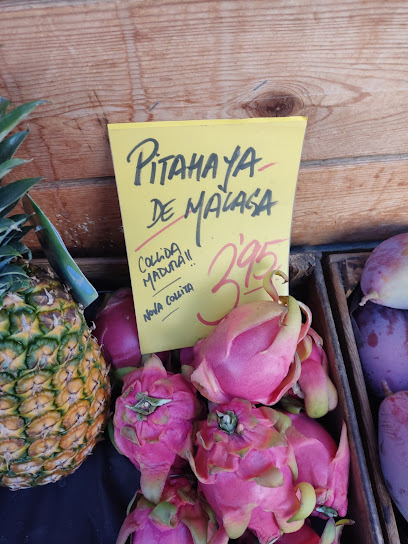 PITAHAYA
DE MÁLAGA
COLLIDA
MADURA!!
NOVA COLLITA
3'95